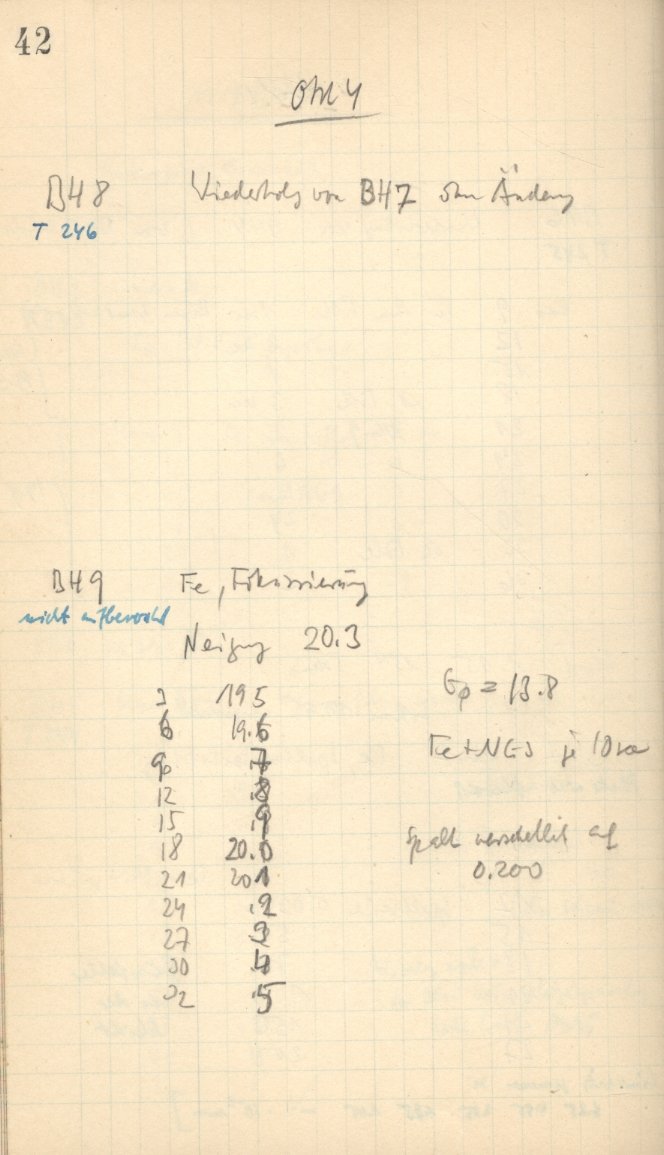 42
BH8 Wiederholg von BH7 ohne Änderg
T 246
BH9 Fe, Fokussierung
nicht aufbewahrt
Neigung 20.3
3 19.5
6 19.6
9 .7
12 .8
15 .9
18 20.0
21 20.1
24 .2
27 .3
30 .4
32 .5
= 13.8
Spalt verstellt auf
0.200